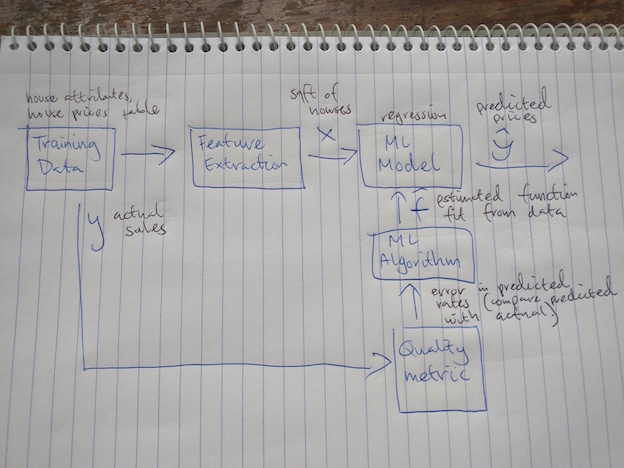 house attributes,
house prices table
Training
Data
Feature
Extraction
sqft of
houses
x
regression
ML
Model
predicted
prices
ŷ
y actual
sales
f̂ estimated function
fit from data
ML
Algorithm
error in predicted
rates (compare predicted
with actual)
Quality
metric